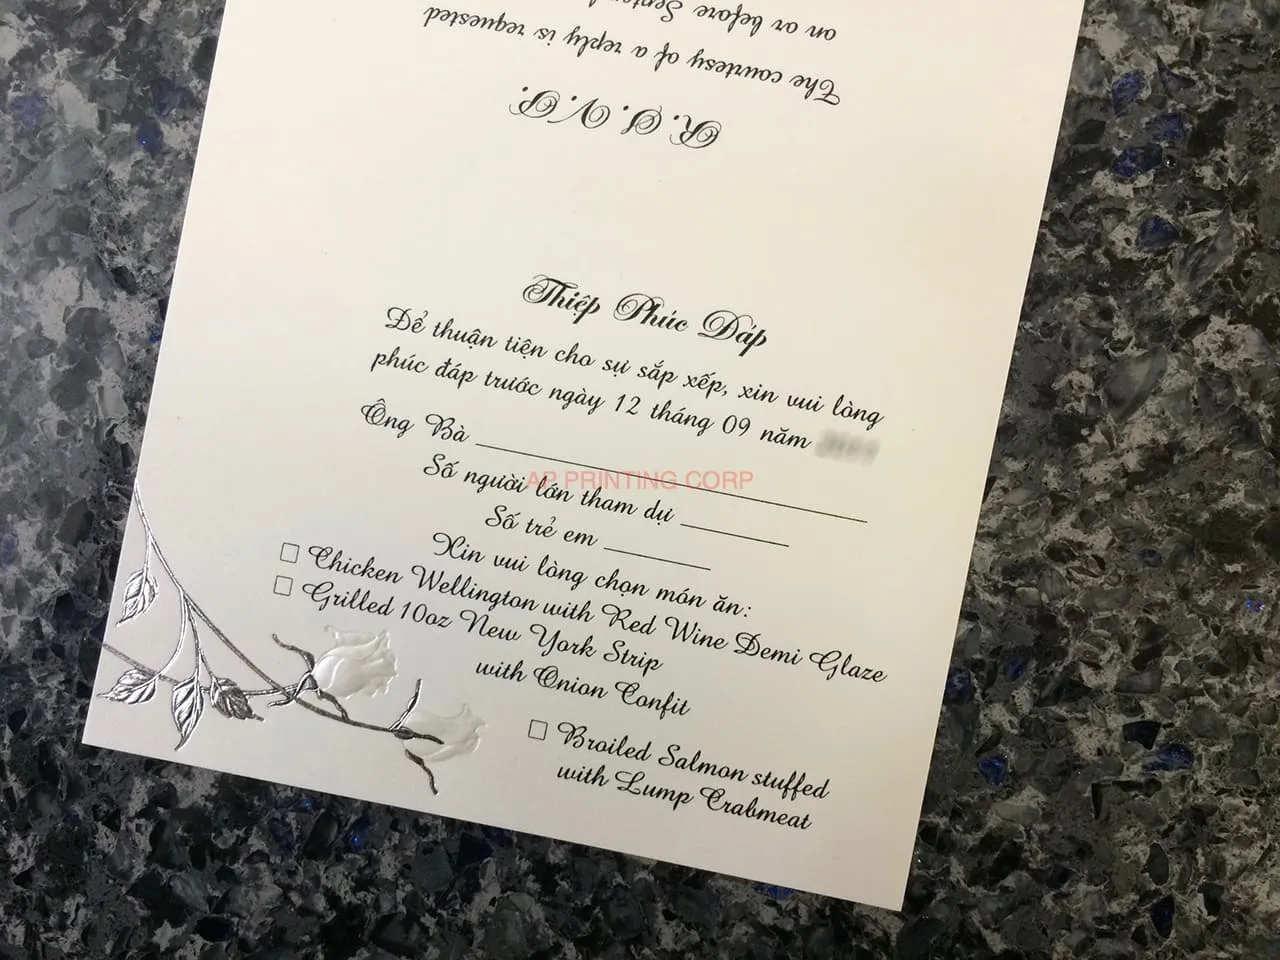 on or before
The courtesy of a reply is requested
R.S.V.P.
Thiệp Phúc Đáp
Để thuận tiện cho sự sắp xếp, xin vui lòng
phúc đáp trước ngày 12 tháng 09 năm
Ông Bà
AP PRINTING CORP
Số người lớn tham dự
Số trẻ em
Xin vui lòng chọn món ăn:
Chicken Wellington with Red Wine Demi Glaze
Grilled 10oz New York Strip
with Onion Confit
Broiled Salmon stuffed
with Lump Crabmeat